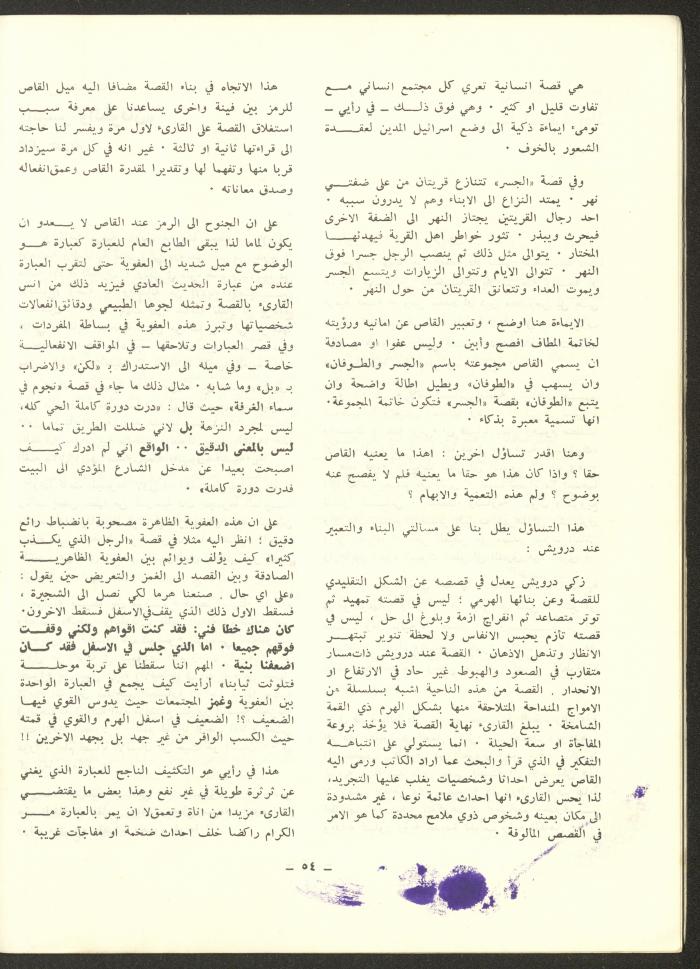 هي قصة انسانية تعري كل مجتمع انساني مــع
تفاوت قليل او كثير ٠ وهي فوق ذلــك ــ في رأيي ــ
تومىء ايماءة ذكية الى وضع اسرائيل المدين لعقــدة
الشعور بالخوف ٠
وفي قصة «الجسر» تتنازع قريتان من على ضفتــي
نهر ٠ يمتد النزاع الى الابناء وهم لا يدرون سببه ٠
احد رجال القريتين يجتاز النهر الى الضفة الاخرى
فيحرث ويبذر ٠ تثور خواطر اهل القرية فيهدئهــا
المختار ٠ يتوالى مثل ذلك ثم ينصب الرجل جسرا فوق
النهر ٠ تتوالى الايام وتتوالى الزيارات ويتسع الجسر
ويموت العداء وتتعانق القريتان من حول النهر ٠
الايماءة هنا اوضح ، وتعبير القاص عن امانيه ورؤيته
لخاتمة المطاف افصح وأبين ٠ وليس عفوا او مصادفة
ان يسمي القاص مجموعته باسم «الجسر والطــوفان»
وان يسهب في «الطوفان» ويطيل اطالة واضحة وان
يتبع «الطوفان» بقصة «الجسر» فتكون خاتمة المجموعة٠
انها تسمية معبرة بذكاء ٠
وهنا اقدر تساؤل اخرين : اهذا ما يعنيه القاص
حقا ؟ واذا كان هذا هو حقا ما يعنيه فلم لا يفصح عنه
بوضوح ؟ ولم هذه التعمية والابهام ؟
هذا التساؤل يطل بنا على مسالتي البناء والتعبير
عند درويش :
زكي درويش يعدل في قصصه عن الشكل التقليدي
للقصة وعن بنائها الهرمي ؛ ليس في قصته تمهيد ثم
توتر متصاعد ثم انفراج ازمة وبلوغ الى حل ، ليس في
قصته تازم يحبس الانفاس ولا لحظة تنوير تبتهــر
الانظار وتذهل الاذهان ٠ القصة عند درويش ذات‌مسار
متقارب في الصعود والهبوط غير حاد في الارتفاع او
الانحدار . القصة من هذه الناحية اشبه بسلسلة من
الامواج المنداحة المتلاحقة منها بشكل الهرم ذي القمة
الشامخة ٠ يبلغ القارىء نهاية القصة فلا يؤخذ بروعة
المفاجأة او سعة الحيلة ٠ انما يستولي على انتباهــه
التفكير في الذي قرأ والبحث عما اراد الكاتب ورمى اليه
القاص يعرض احداثا وشخصيات يغلب عليها التجريد،
لذا يحس القارىء انها احداث عائمة نوعا ، غير مشدودة
الى مكان بعينه وشخوص ذوي ملامح محددة كما هو الامر
في القصص المالوفة ٠
هذا الاتجاه في بناء القصة مضافا اليه ميل القاص
للرمز بين فينة واخرى يساعدنا على معرفة سبــب
استغلاق القصة على القارىء لاول مرة ويفسر لنا حاجته
الى قراءتها ثانية او ثالثة ٠ غير انه في كل مرة سيزداد
قربا منها وتفهما لها وتقديرا لمقدرة القاص وعمق‌انفعاله
وصدق معاناته ٠
على ان الجنوح الى الرمز عند القاص لا يــعدو ان
يكون لماما لذا يبقى الطابع العام للعبارة كعبارة هــو
الوضوح مع ميل شديد الى العفوية حتى لتقرب العبارة
عنده من عبارة الحديث العادي فيزيد ذلك من انس
القارىء بالقصة وتمثله لجوها الطبيعي ودقائق‌انفعالات
شخصياتها وتبرز هذه العفوية في بساطة المفردات ،
وفي قصر العبارات وتلاحقها ــ في المواقف الانفعاليــة
خاصة ــ وفي ميله الى الاستدراك بـ «لكن» والاضراب
بـ «بل» وما شابه ٠ مثال ذلك ما جاء في قصة «نجوم في
سماء الغرفة» حيث قال : «درت دورة كاملة الحي كله،
ليس لمجرد النزهة بل لاني ضللت الطريق تماما ٠٠
ليس بالمعنى الدقيق ٠٠ الواقع اني لم ادرك كيــف
اصبحت بعيدا عن مدخل الشارع المؤدي الى البيت
فدرت دورة كاملة» ٠
على ان هذه العفوية الظاهرة مصحوبة بانضباط رائع
دقيق ؛ انظر اليه مثلا في قصة «الرجل الذي يكــذب
كثيرا» كيف يؤلف ويوائم بين العفوية الظاهريــة
الصادقة وبين القصد الى الغمز والتعريض حين يقول :
«على اي حال . صنعنا هرما لكي نصل الى الشجيرة ،
فسقط الاول ذلك الذي يقف‌في‌الاسفل فسقط الاخرون٠
كان هناك خطا فني: فقد كنت اقواهم ولكني وقفــت
فوقهم جميعا ٠ اما الذي جلس في الاسفل فقد كــان
اضعفنا بنية ٠ المهم اننا سقطنا على تربة موحلــة
فتلوثت ثيابنا» أرأيت كيف يجمع في العبارة الواحدة
بين العفوية وغمز المجتمعات حيث يدوس القوي فيهــا
الضعيف ؟! الضعيف في اسفل الهرم والقوي في قمته
حيث الكسب الوافر من غير جهد بل بجهد الاخرين !!
هذا في رأيي هو التكثيف الناجح للعبارة الذي يغني
عن ثرثرة طويلة في غير نفع وهذا بعض ما يقتضــي
القارىء مزيدا من اناة وتعمق‌لا ان يمر بالعبارة مــر
الكرام راكضا خلف احداث ضخمة او مفاجآت غريبة ٠
ــ ٥٤ ــ